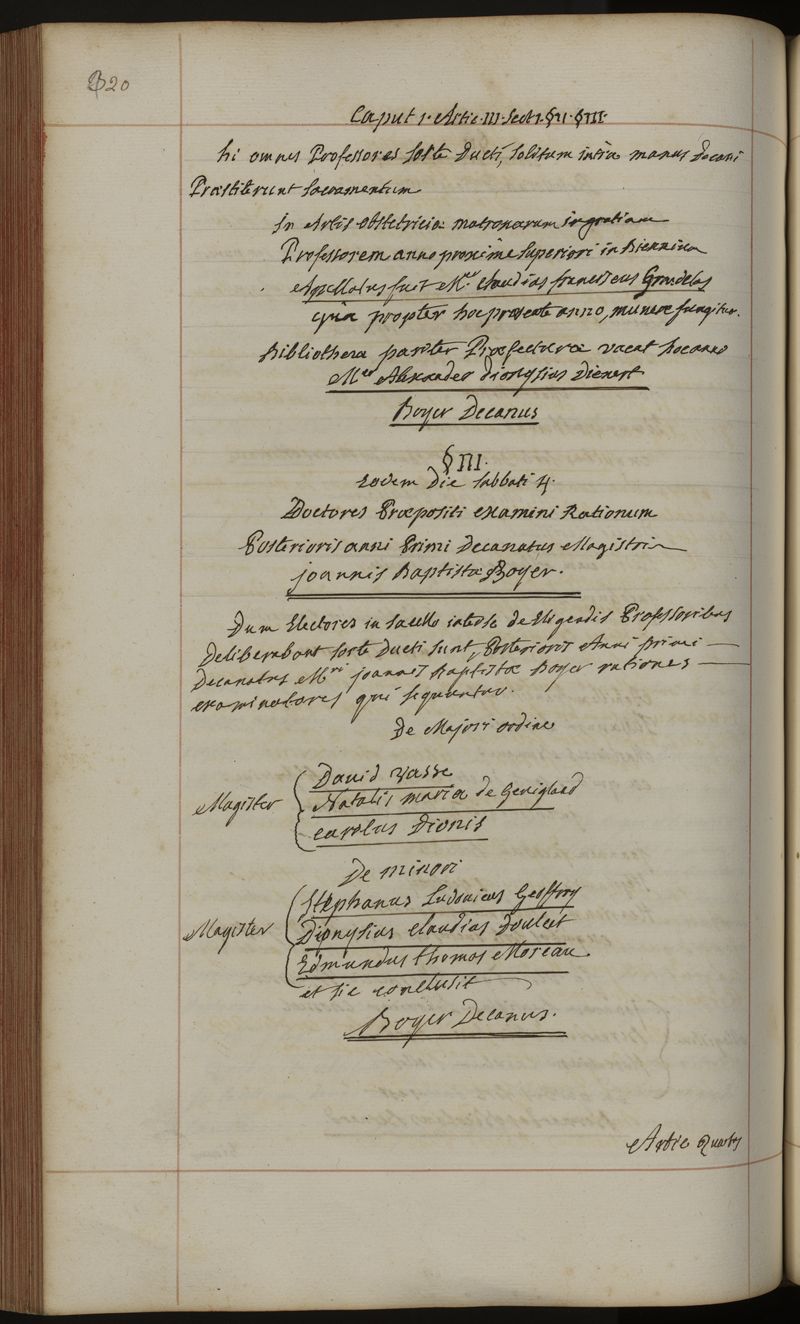 220
Caput 1. Artic. III. Sect. 1. §. II. §III.
hi omnes Professores sorte Ducti, solitum intra manus Decani
Præstiterunt sacramentum
in Artis obstetriciæ matronarum in gratiam
Professorem anno proxime superiori in Biennium
Apellatus fuit Mer. Claudius franciscus Grandclas
qui propter hoc præsente anno, munere fungitur.
Bibliothecæ pariter Præfecturæ vacat hocanno
Mer Alexander Dionysius Dienert
Boyer Decanus
§ III.
Eodem Die sabbati 4.
Doctores Præpositi examini Rationum
Posterioris anni Primi Decanatus Magistri
joannis Baptistæ Boyer.
Dum Electores in sacello inter se de Eligendis Professoribus
Deliberabant sorte Ducti sunt, Posterioris Anni primi
Decanatus Mri joannis Baptistæ Boyer rationes
examinatores qui sequuntur.
De Majori ordine
Magister
David Vasse
Natalis maria de Gevigland
Carolus Dionis
De minori
Magister
Stephanus Ludovicus Geoffroy
Dionysius Claudius Doulcet
Edmundus thomas Moreau
et sic conclusit
Boyer Decanus.
Artic Quartus